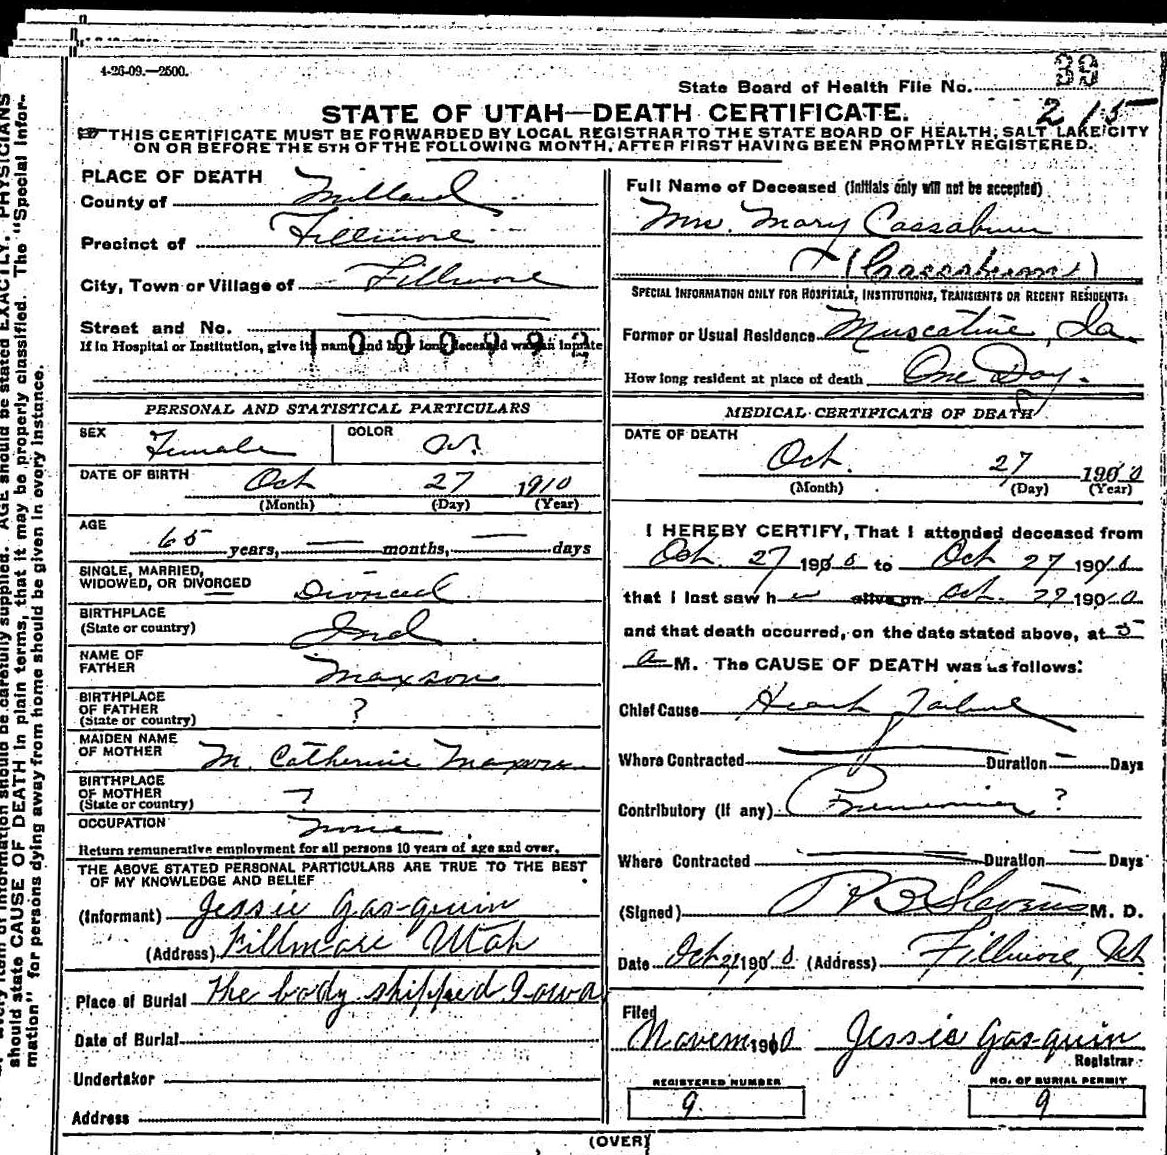 4-26-09.—2500.
State Board of Health File No. 39
STATE OF UTAH—DEATH CERTIFICATE. 215
THIS CERTIFICATE MUST BE FORWARDED BY LOCAL REGISTRAR TO THE STATE BOARD OF HEALTH, SALT LAKE CITY
ON OR BEFORE THE 5TH OF THE FOLLOWING MONTH, AFTER FIRST HAVING BEEN PROMPTLY REGISTERED.
PLACE OF DEATH
County of Millard
Precinct of Fillmore
City, Town or Village of Fillmore
Street and No.
If in Hospital or Institution, give its name and how long deceased was an inmate
1000992
PERSONAL AND STATISTICAL PARTICULARS
SEX Female COLOR W.
DATE OF BIRTH Oct 27 1910
(Month) (Day) (Year)
AGE
65 years, — months, — days
SINGLE, MARRIED,
WIDOWED, OR DIVORCED Divorced
BIRTHPLACE
(State or country) Ind.
NAME OF
FATHER Maxson
BIRTHPLACE
OF FATHER
(State or country) ?
MAIDEN NAME
OF MOTHER M. Catherine Maxson
BIRTHPLACE
OF MOTHER
(State or country) ?
OCCUPATION None
Return remunerative employment for all persons 10 years of age and over.
THE ABOVE STATED PERSONAL PARTICULARS ARE TRUE TO THE BEST
OF MY KNOWLEDGE AND BELIEF
(Informant) Jessie Gas-quin
(Address) Fillmore Utah
Place of Burial The body shipped Iowa
Date of Burial
Undertaker
Address
Full Name of Deceased (Initials only will not be accepted)
Mrs. Mary Cassaburn
SPECIAL INFORMATION ONLY FOR HOSPITALS, INSTITUTIONS, TRANSIENTS OR RECENT RESIDENTS:
Former or Usual Residence Muscatine, Ia.
How long resident at place of death One Day.
MEDICAL CERTIFICATE OF DEATH
DATE OF DEATH
Oct. 27 1910
(Month) (Day) (Year)
I HEREBY CERTIFY, That I attended deceased from
Oct. 27 1910 to Oct 27 1910
that I last saw her alive on Oct. 27 1910
and that death occurred, on the date stated above, at 5
a M. The CAUSE OF DEATH was as follows:
Chief Cause Heart Failure
Where Contracted — Duration — Days
Contributory (if any) Pneumonia ?
Where Contracted — Duration — Days
(Signed) Stevens M. D.
Date Oct 1910 (Address) Fillmore, Ut
Filed
Novem 1910 Jessie Gas-quin
Registrar
REGISTERED NUMBER
9
NO. OF BURIAL PERMIT
9
(OVER)
should state CAUSE OF DEATH in plain terms, that it may be properly classified. The "Special Infor-
mation" for persons dying away from home should be given in every instance.